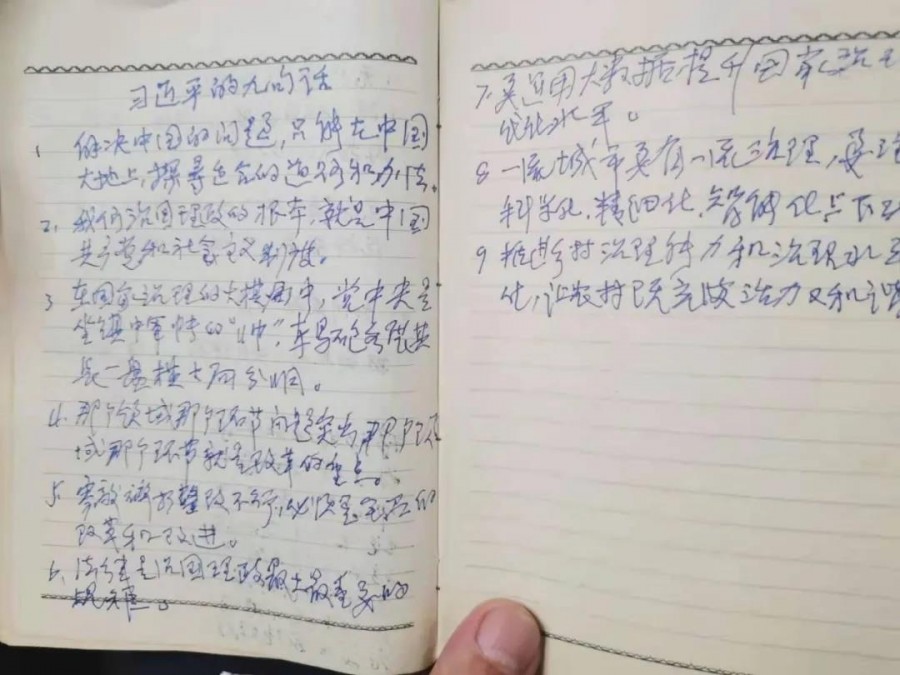 习近平的九句话
1 解决中国的问题,只能在中国
大地上探寻适合的道路和办法。
2. 我们治国理政的根本,就是中国
共产党和社会主义制度。
3 在国家治理的大棋局中,党中央是
坐镇中军帐的“帅”,车马炮各展其
长一盘棋大局分明。
4. 那个领域那个环节问题突出那个领
域那个环节就是改革的重点。
5. 零敲碎打整改不行,必须是全面的
改革和改进。
6. 法律是治国理政最大最重要的
规矩。
7. 要运用大数据提升国家治理
代化水平。
8 一流城市要有一流治理,要
科学化,精细化,智能化上下
9 推进乡村治理能力和治理水
化,让农村既充满活力又和谐